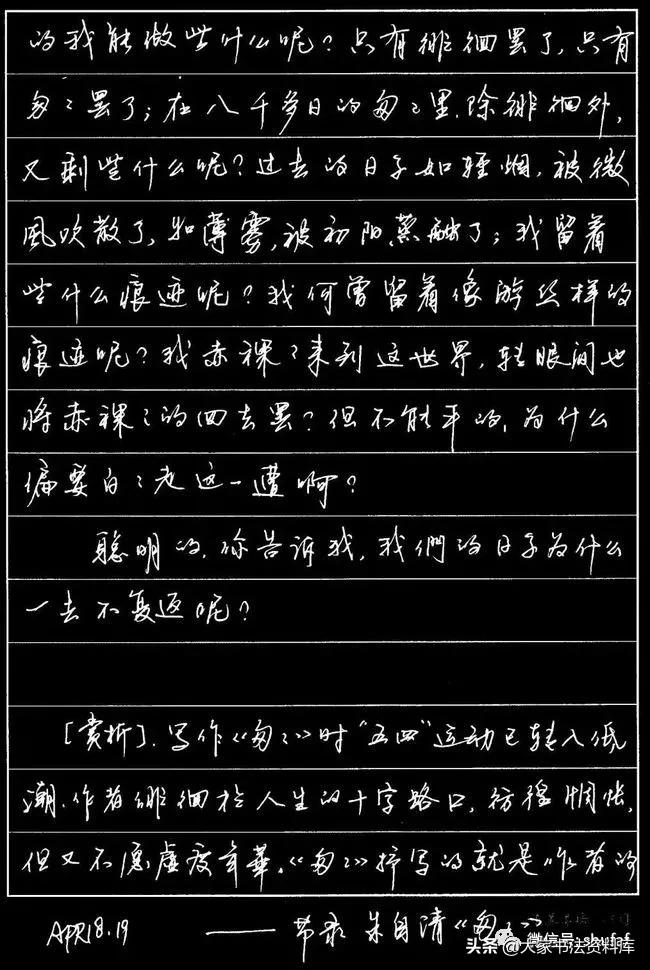 的我能做些什么呢?只有徘徊罢了,只有
匆匆罢了;在八千多日的匆匆里,除徘徊外,
又剩些什么呢?过去的日子如轻烟,被微
風吹散了,如薄雾,被初阳蒸融了;我留着
些什么痕迹呢?我何曾留着像游丝样的
痕迹呢?我赤裸裸来到这世界,转眼间也
将赤裸裸的回去罢?但不能平的,为什么
偏要白白走这一遭啊?
聪明的,你告诉我,我們的日子为什么
一去不复返呢?
[赏析].写作《匆匆》时“五四”运动已转入低
潮.作者徘徊於人生的十字路口,彷徨惆怅,
但又不愿虚度年華。《匆匆》抒写的就是作者的
APR18.19 —— 节录 朱自清《匆匆》
微信号:shufaf
头条@大家书法资料库